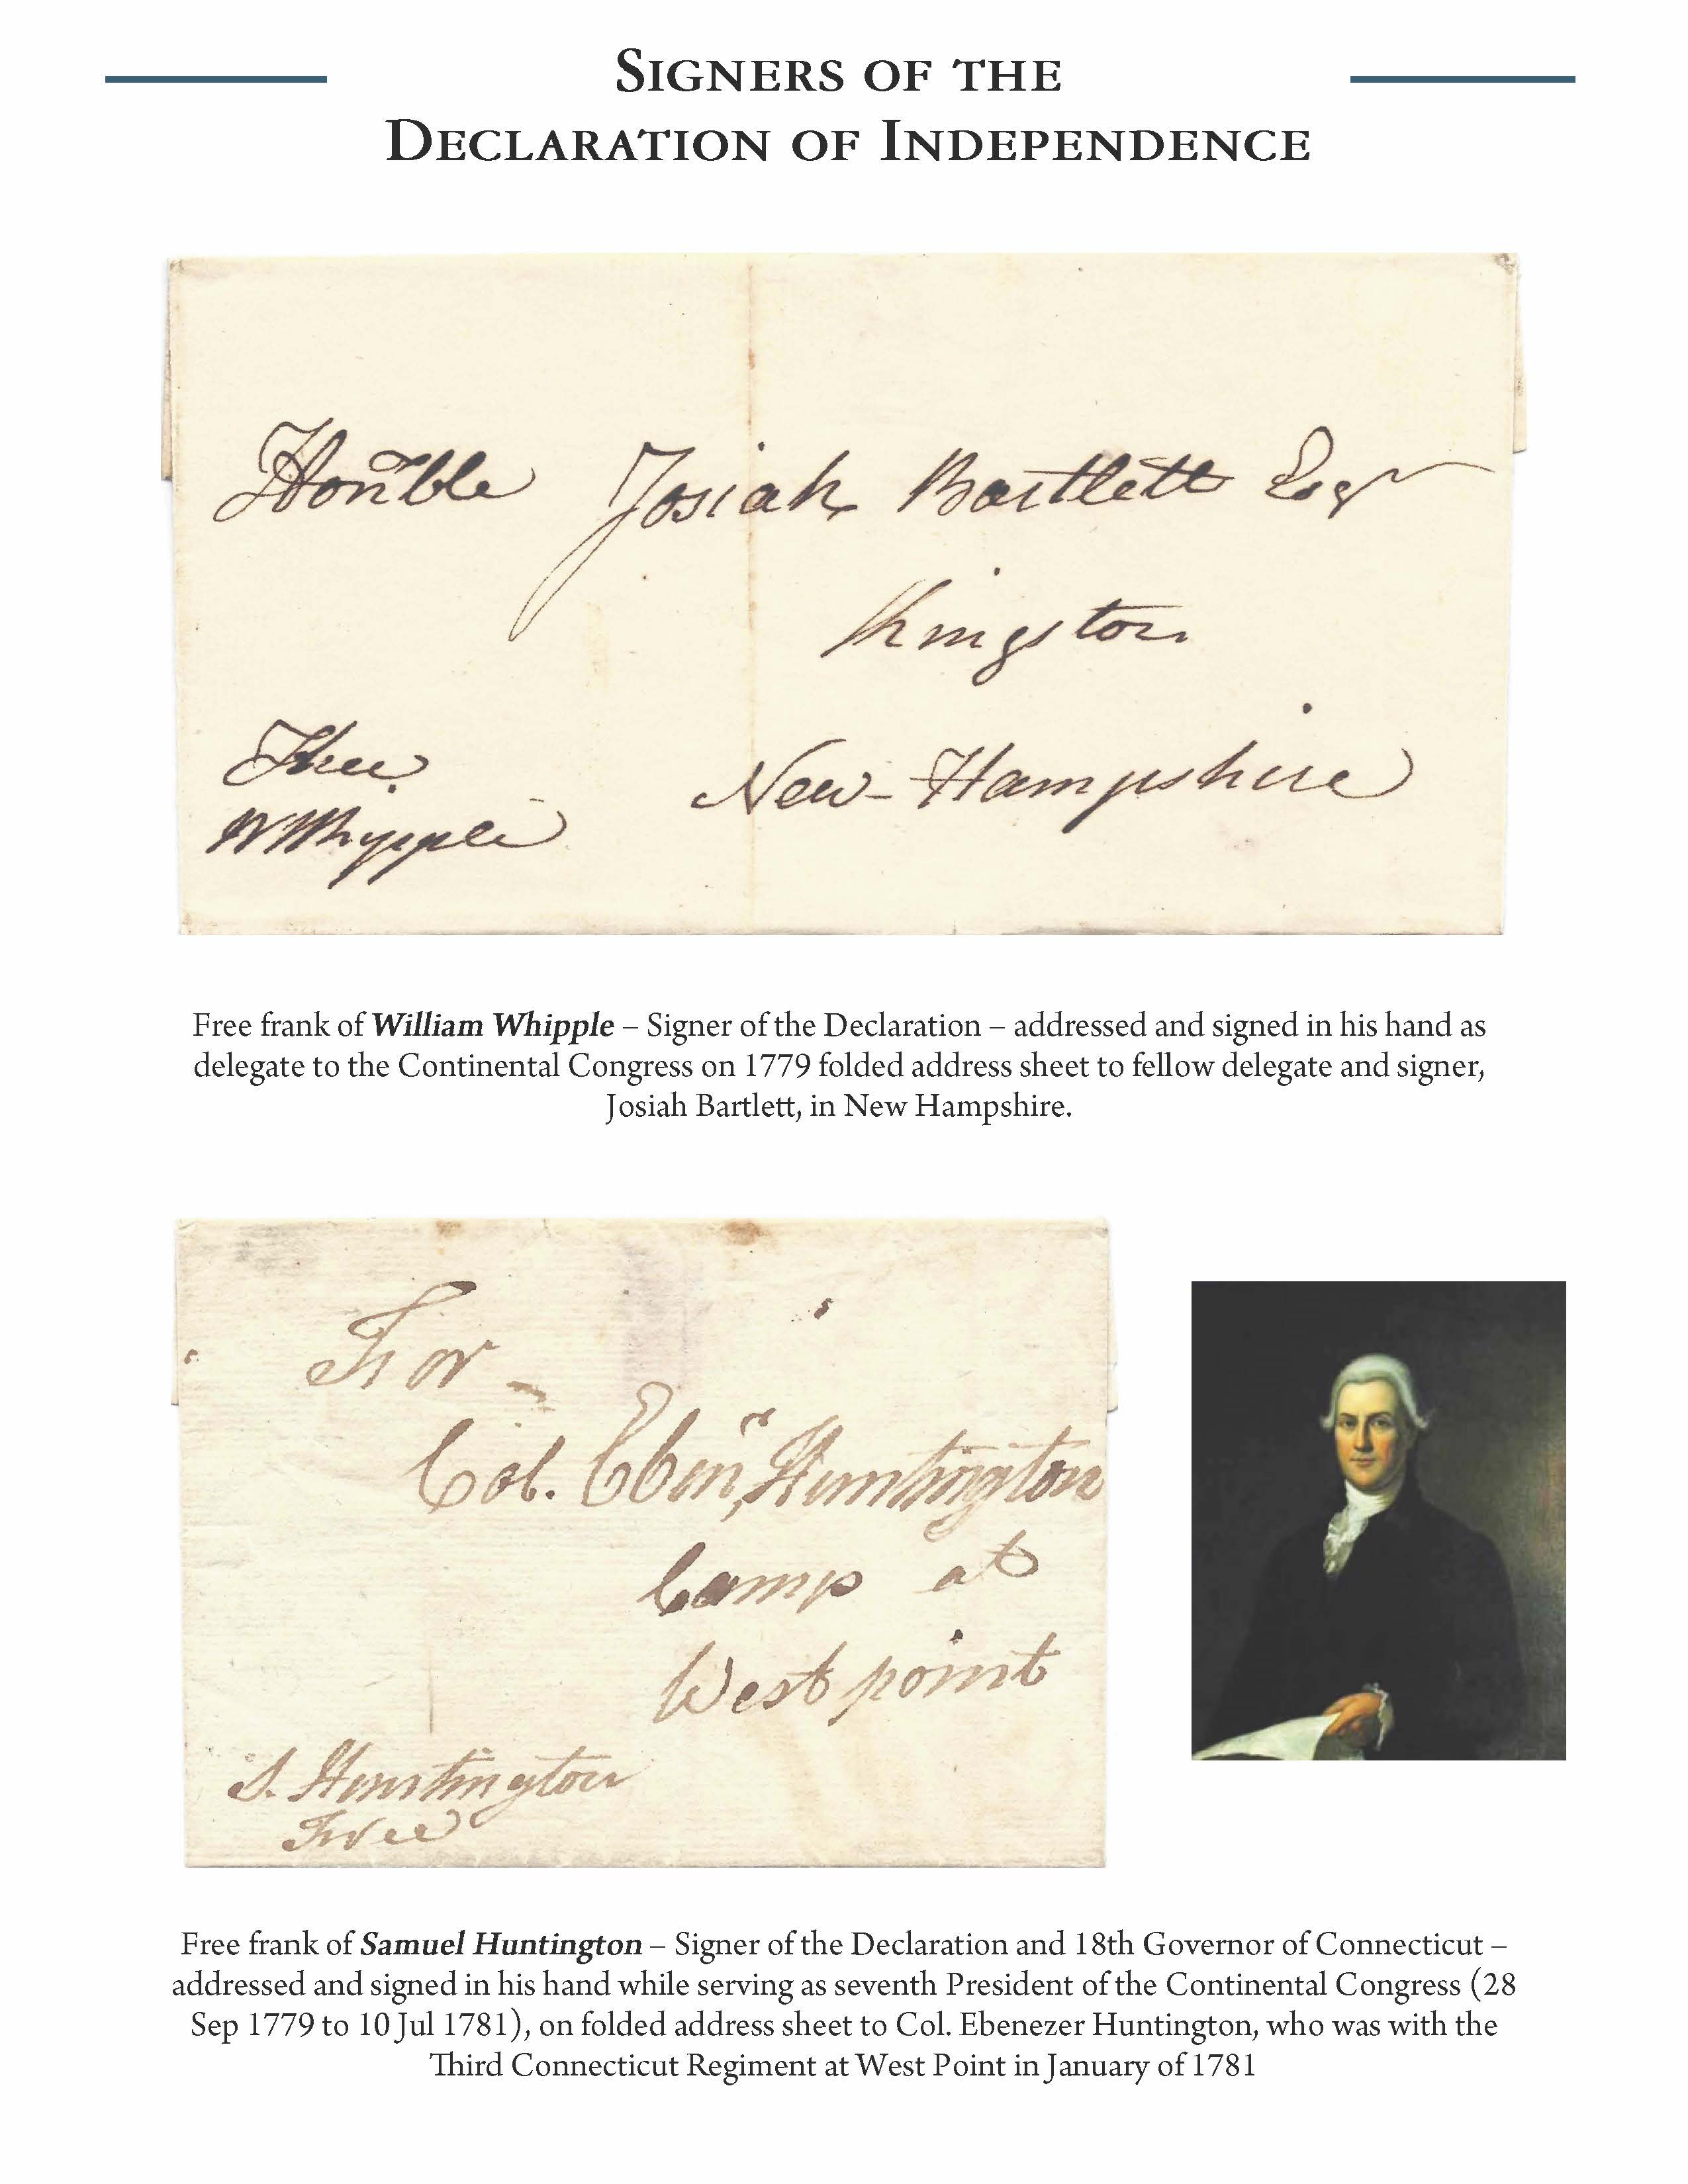 Signers of the
Declaration of Independence
Honble Josiah Bartlett Esqr
Kingston
New-Hampshire
Free
WWhipple
Free frank of William Whipple – Signer of the Declaration – addressed and signed in his hand as
delegate to the Continental Congress on 1779 folded address sheet to fellow delegate and signer,
Josiah Bartlett, in New Hampshire.
For
Col. Ebenr, Huntington
Camp at
West point
S. Huntington
Free
Free frank of Samuel Huntington – Signer of the Declaration and 18th Governor of Connecticut –
addressed and signed in his hand while serving as seventh President of the Continental Congress (28
Sep 1779 to 10 Jul 1781), on folded address sheet to Col. Ebenezer Huntington, who was with the
Third Connecticut Regiment at West Point in January of 1781